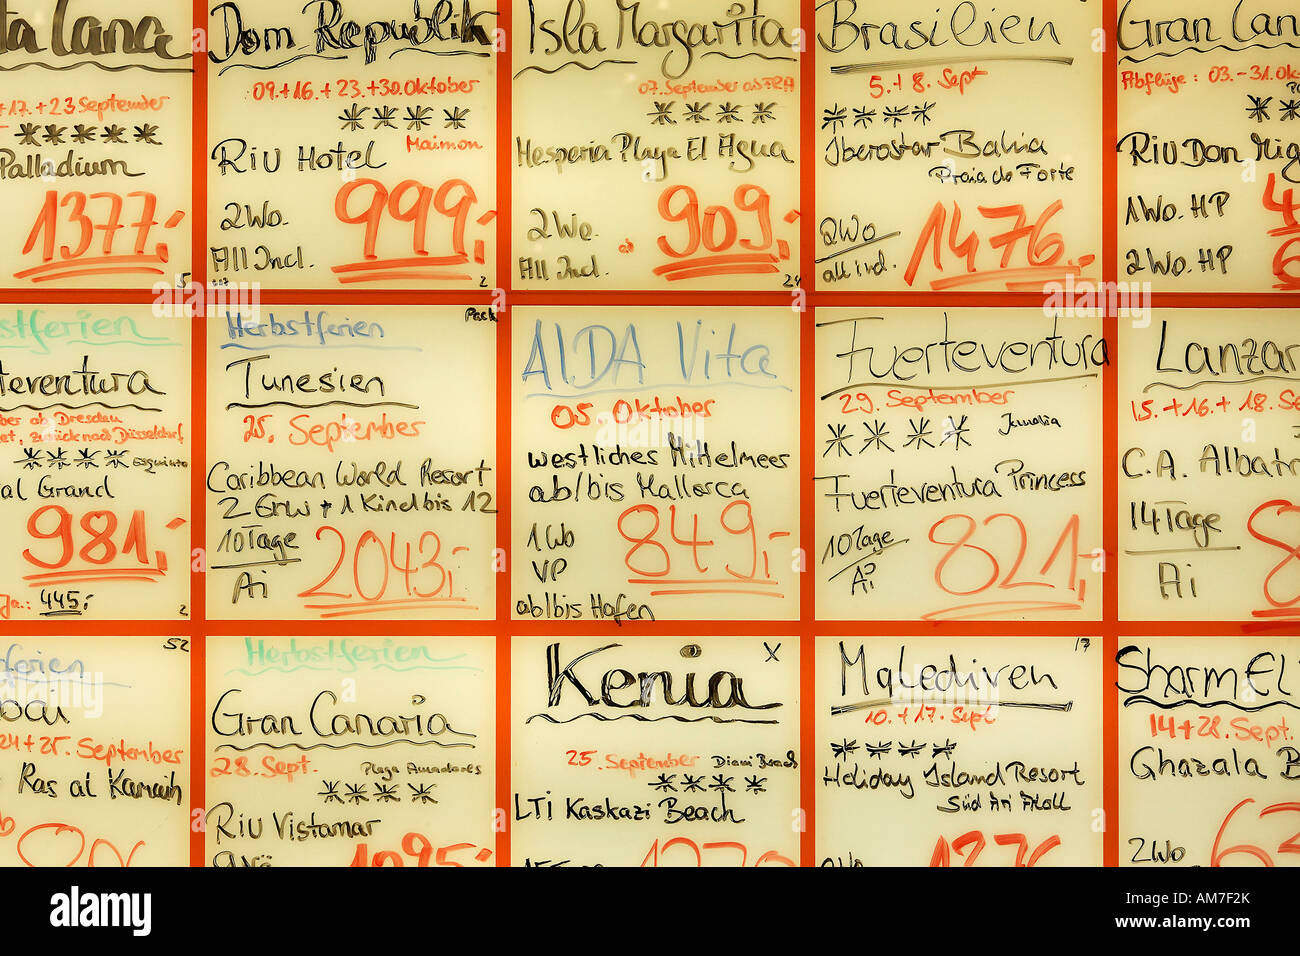 Dom Republik
09.+16.+23.+30.Oktober
Riu Hotel
Maimon
2Wo.
All Incl.
999,-
2
Isla Margarita
07. September ab FRA
Hesperia Playa El Agua
2Wo.
All Incl.
ab 909,-
24
Brasilien
5.+8. Sept
Iberostar Bahia
Praia do Forte
2Wo
all incl.
1476.-
Gran Can
Abflüge: 03.-31.Ok
Riu Don Mig
1Wo. HP
2Wo. HP
+17.+23 September
Palladium
1377,-
5
stferien
teventura
ber ab Dresden
zurück nach Düsseldorf
Esquinzo
al Grand
981,-
445,-
2
Herbstferien
Pack
Tunesien
25. September
Caribbean World Resort
2 Erw + 1 Kind bis 12
10Tage
Ai
2043,-
AIDA Vita
05. Oktober
westliches Mittelmeer
ab/bis Mallorca
1Wo
VP
849,-
ab/bis Hafen
Fuerteventura
29. September
Jandia
Fuerteventura Princess
10Tage
Ai
821,-
Lanzar
15.+16.+18.Se
C.A. Albatr
14Tage
Ai
8
52
rferien
bai
24+25. September
Ras al Kamaih
Herbstferien
Gran Canaria
28. Sept.
Playa Amadores
Riu Vistamar
1095,-
Kenia
X
25. September
Diani Beach
LTI Kaskazi Beach
Malediven
17
10.+17. Sept
Holiday Island Resort
Süd Ari Atoll
2Wo
1276
Sharm El
14+28. Sept.
Ghazala B
2Wo
63
alamy stock photo
alamy
Image ID: AM7F2K
www.alamy.com